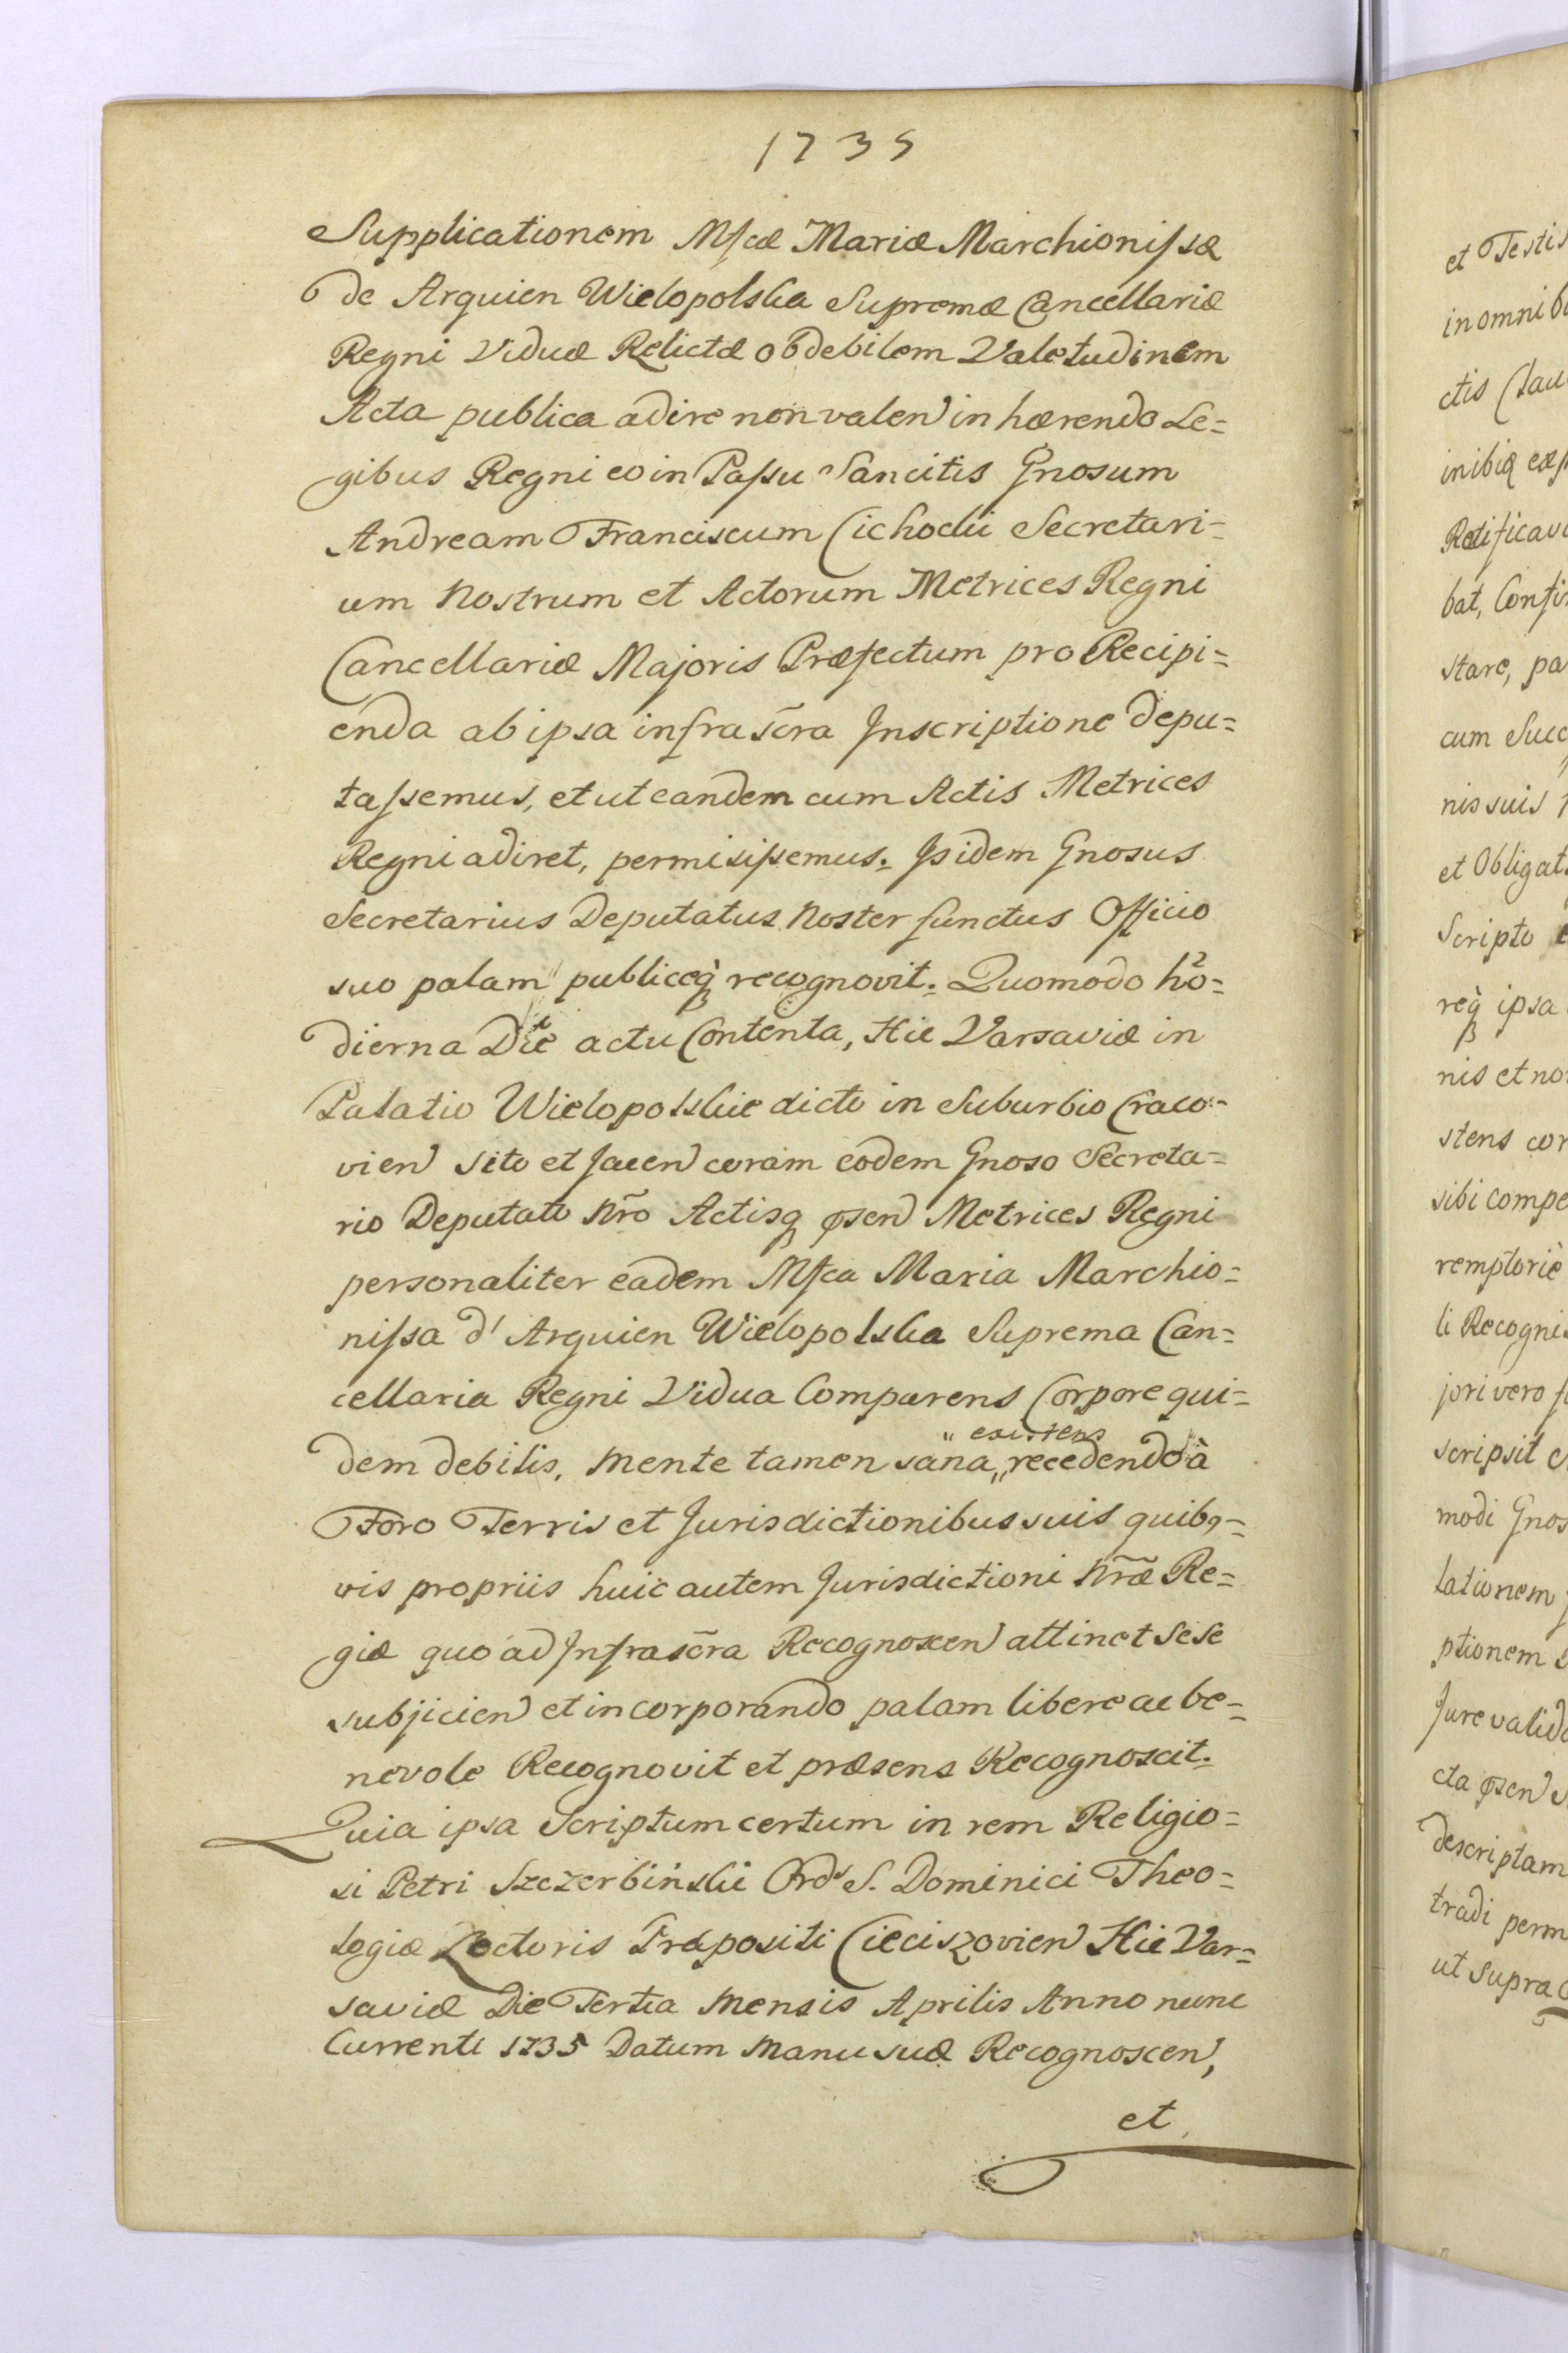 1735
Supplicationem Mſcæ Mariæ Marchioniſsæ
de Arquien Wielopolska Supremæ Cancellariæ
Regni Viduæ Relictæ ob debilem Valetudinem
Acta publica adire non valen in hærendo Le=
gibus Regni eo in Paſsu Sancitis Gnosum
Andream Franciscum Cichocki Secretari=
um Nostrum et Actorum Metrices Regni
Cancellariæ Majoris Præfectum pro Recipi=
enda ab ipsa infra scr̃a Inscriptione depu=
taſsemus, et ut eandem cum Actis Metrices
Regni adiret, permisiſsemus. Isidem Gnosus
Secretarius Deputatus Noster functus Officio
suo palam publiceq̀ recognovit. Quomodo ho=
dierna Die actu Contenta, Hic Varsaviæ in
Palatio Wielopolskie dicto in Suburbio Craco=
vien sito et Jacen coram eodem Gnoso Secreta=
rio Deputato Nrõ Actisq̨ psen Metrices Regni
personaliter eadem Mſca Maria Marchio=
niſsa d' Arquien Wielopolska Suprema Can=
cellaria Regni Vidua Comparens Corpore qui=
dem debilis, mente tamen sana,, recedendo à
" existens
Foro Terris et Jurisdictionibus suis quibq=
vis propriis huic autem Jurisdictioni Nræ̃ Re=
giæ quo ad Infrascr̃a Recognoscen attinet sese
subjicien et incorporando palam libere ac be=
nevole Recognovit et præsens Recognoscit.
Quia ipsa Scriptum certum in rem Religio=
si Petri Szczerbiński Ords S. Dominici Theo=
logiæ Lectoris Præpositi Cieciszovien Hic Var=
saviæ Die Tertia Mensis Aprilis Anno nunc
Currenti 1735 Datum Manu suæ Recognoscen,
et
et Testis
in omnib
ctis Clau
inibiq
Ratificav
bat, Confir
stare, pa
cum Succ
nis suis
et Obligat
Scripto
req̀ ipsa
nis et no
stens cor
sibi compe
remptoriè
li Recognis
jori vero
scripsit
modi Gnos
lationem
ptionem
Jure valido
cta psen
descriptam
tradi perm
ut supra